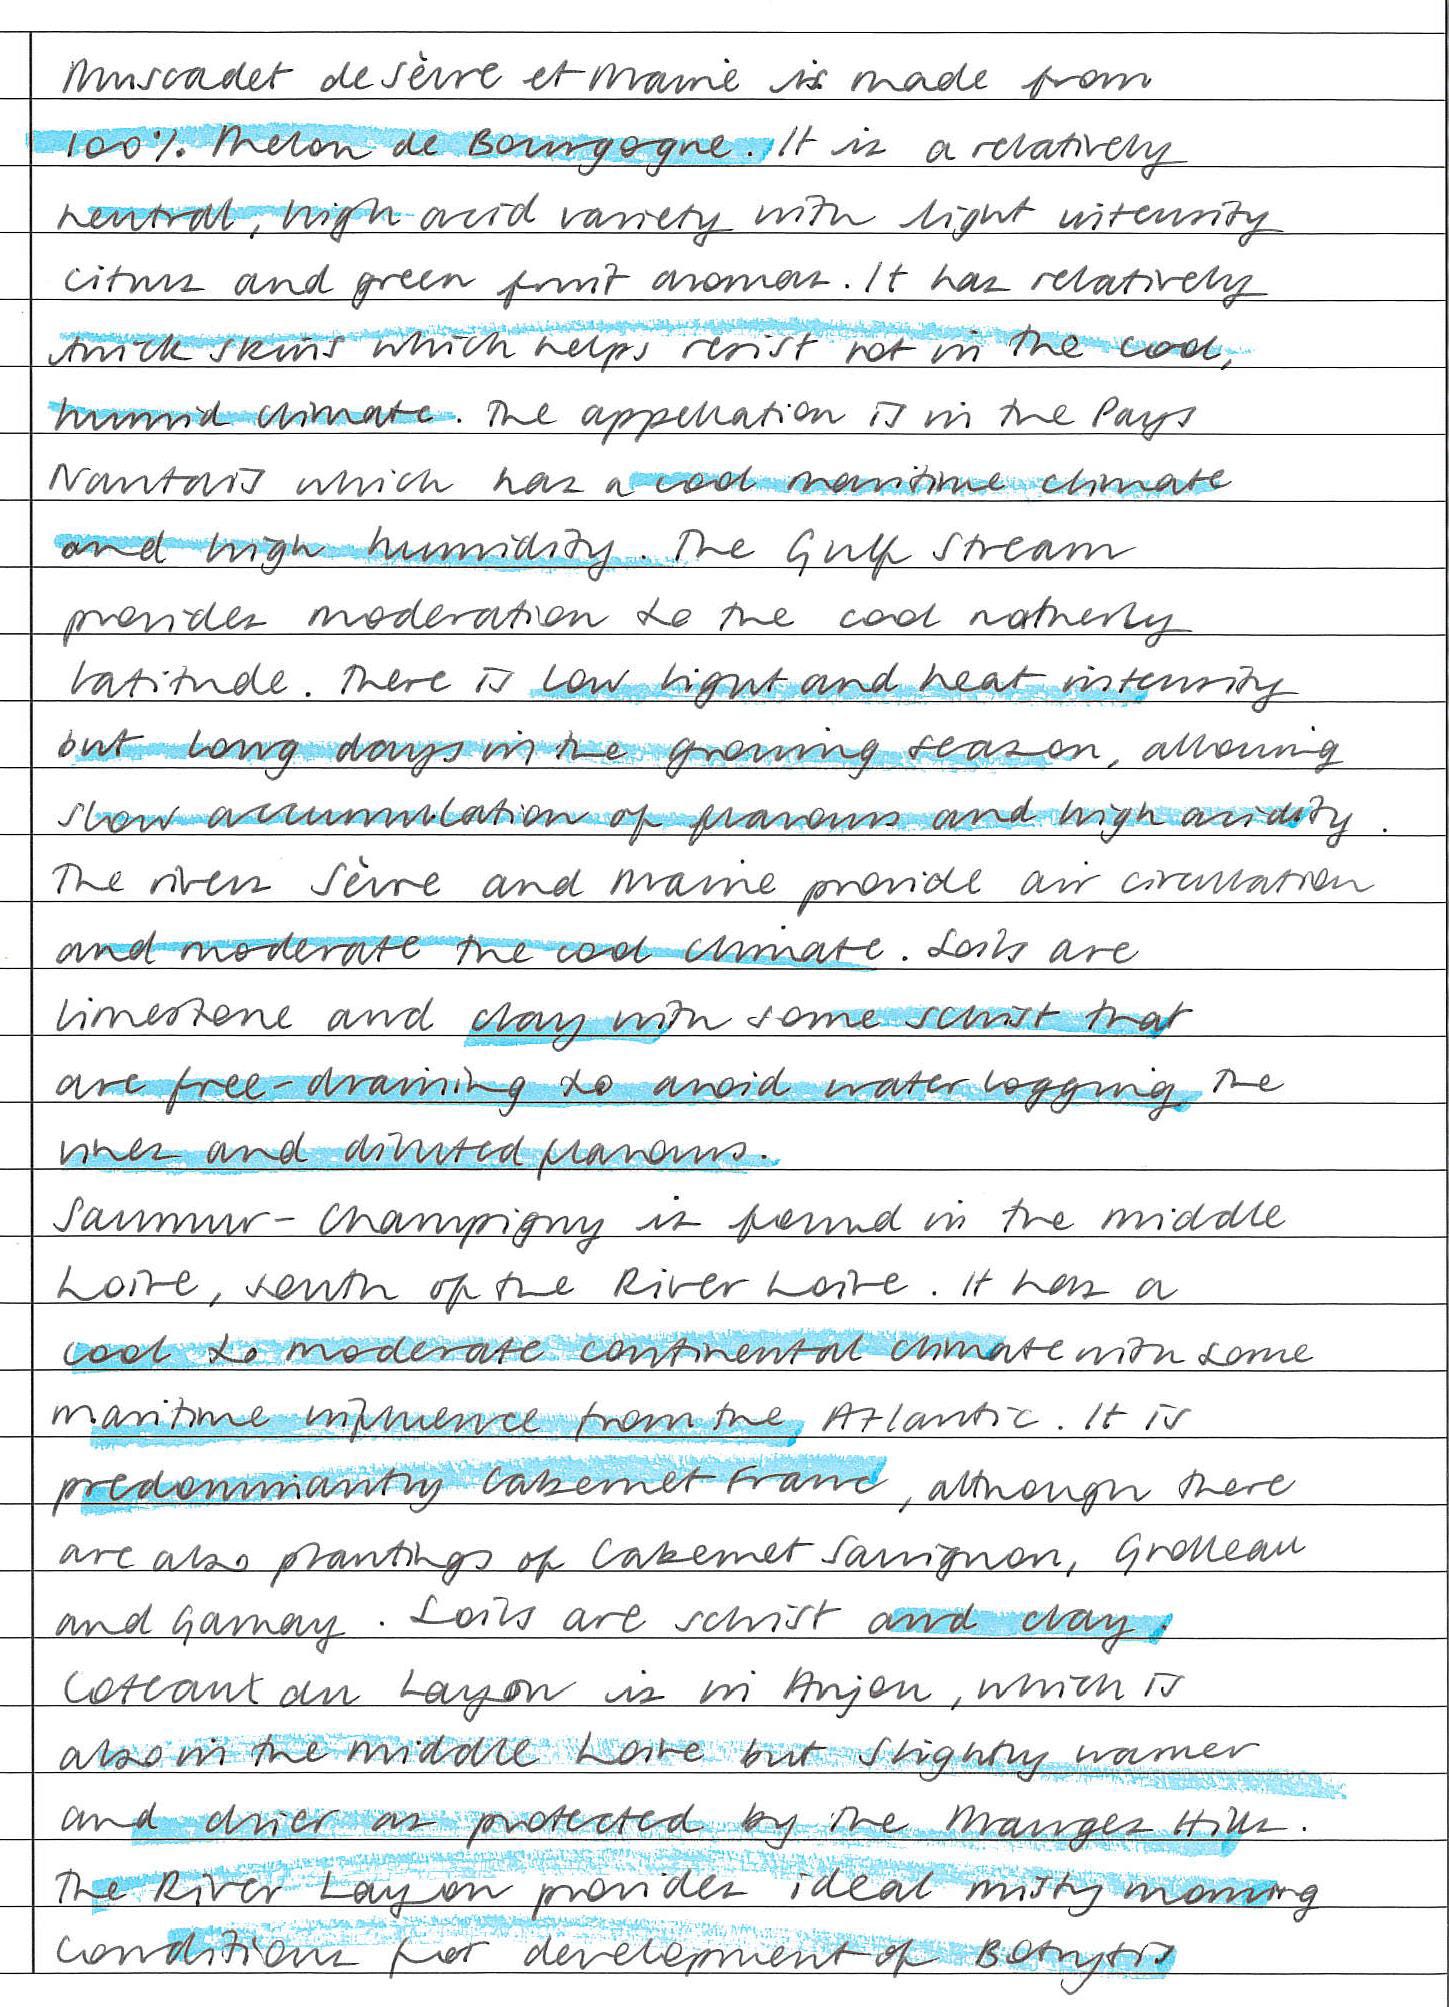 Muscadet de Sèvre et Maine is made from
100% Melon de Bourgogne. It is a relatively
neutral, high acid variety with light intensity
citrus and green fruit aromas. It has relatively
thick skins which helps resist rot in the cool,
humid climate. The appellation is in the Pays
Nantais which has a cool maritime climate
and high humidity. The Gulf Stream
provides moderation to the cool northerly
latitude. There is low light and heat intensity
but long days in the growing season, allowing
slow accumulation of flavours and high acidity.
The rivers Sèvre and Maine provide air circulation
and moderate the cool climate. Soils are
limestone and clay with some schist that
are free-draining to avoid waterlogging the
vines and diluted flavours.
Saumur-Champigny is found in the middle
Loire, south of the River Loire. It has a
cool to moderate continental climate with some
maritime influence from the Atlantic. It is
predominantly Cabernet Franc, although there
are also plantings of Cabernet Sauvignon, Grolleau
and Gamay. Soils are schist and clay.
Coteaux du Layon is in Anjou, which is
also in the middle Loire but slightly warmer
and drier as protected by the Mauges Hills.
The River Layon provides ideal misty morning
conditions for development of Botrytis